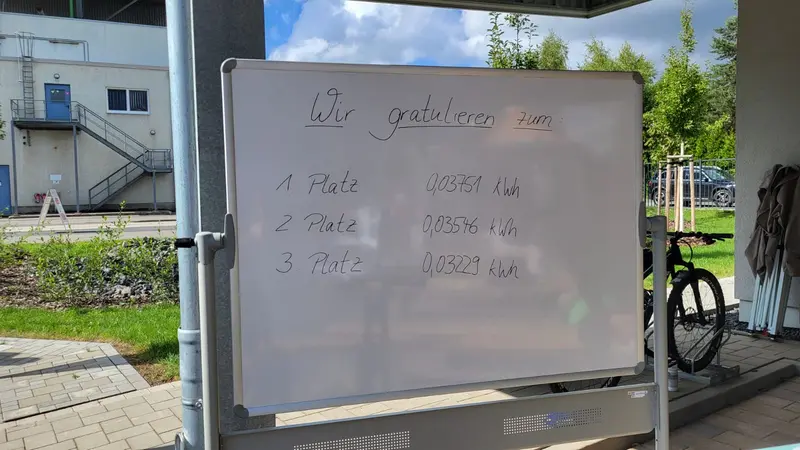 Wir gratulieren zum:
1 Platz 0,03751 kWh
2 Platz 0,03546 kWh
3 Platz 0,03229 kWh